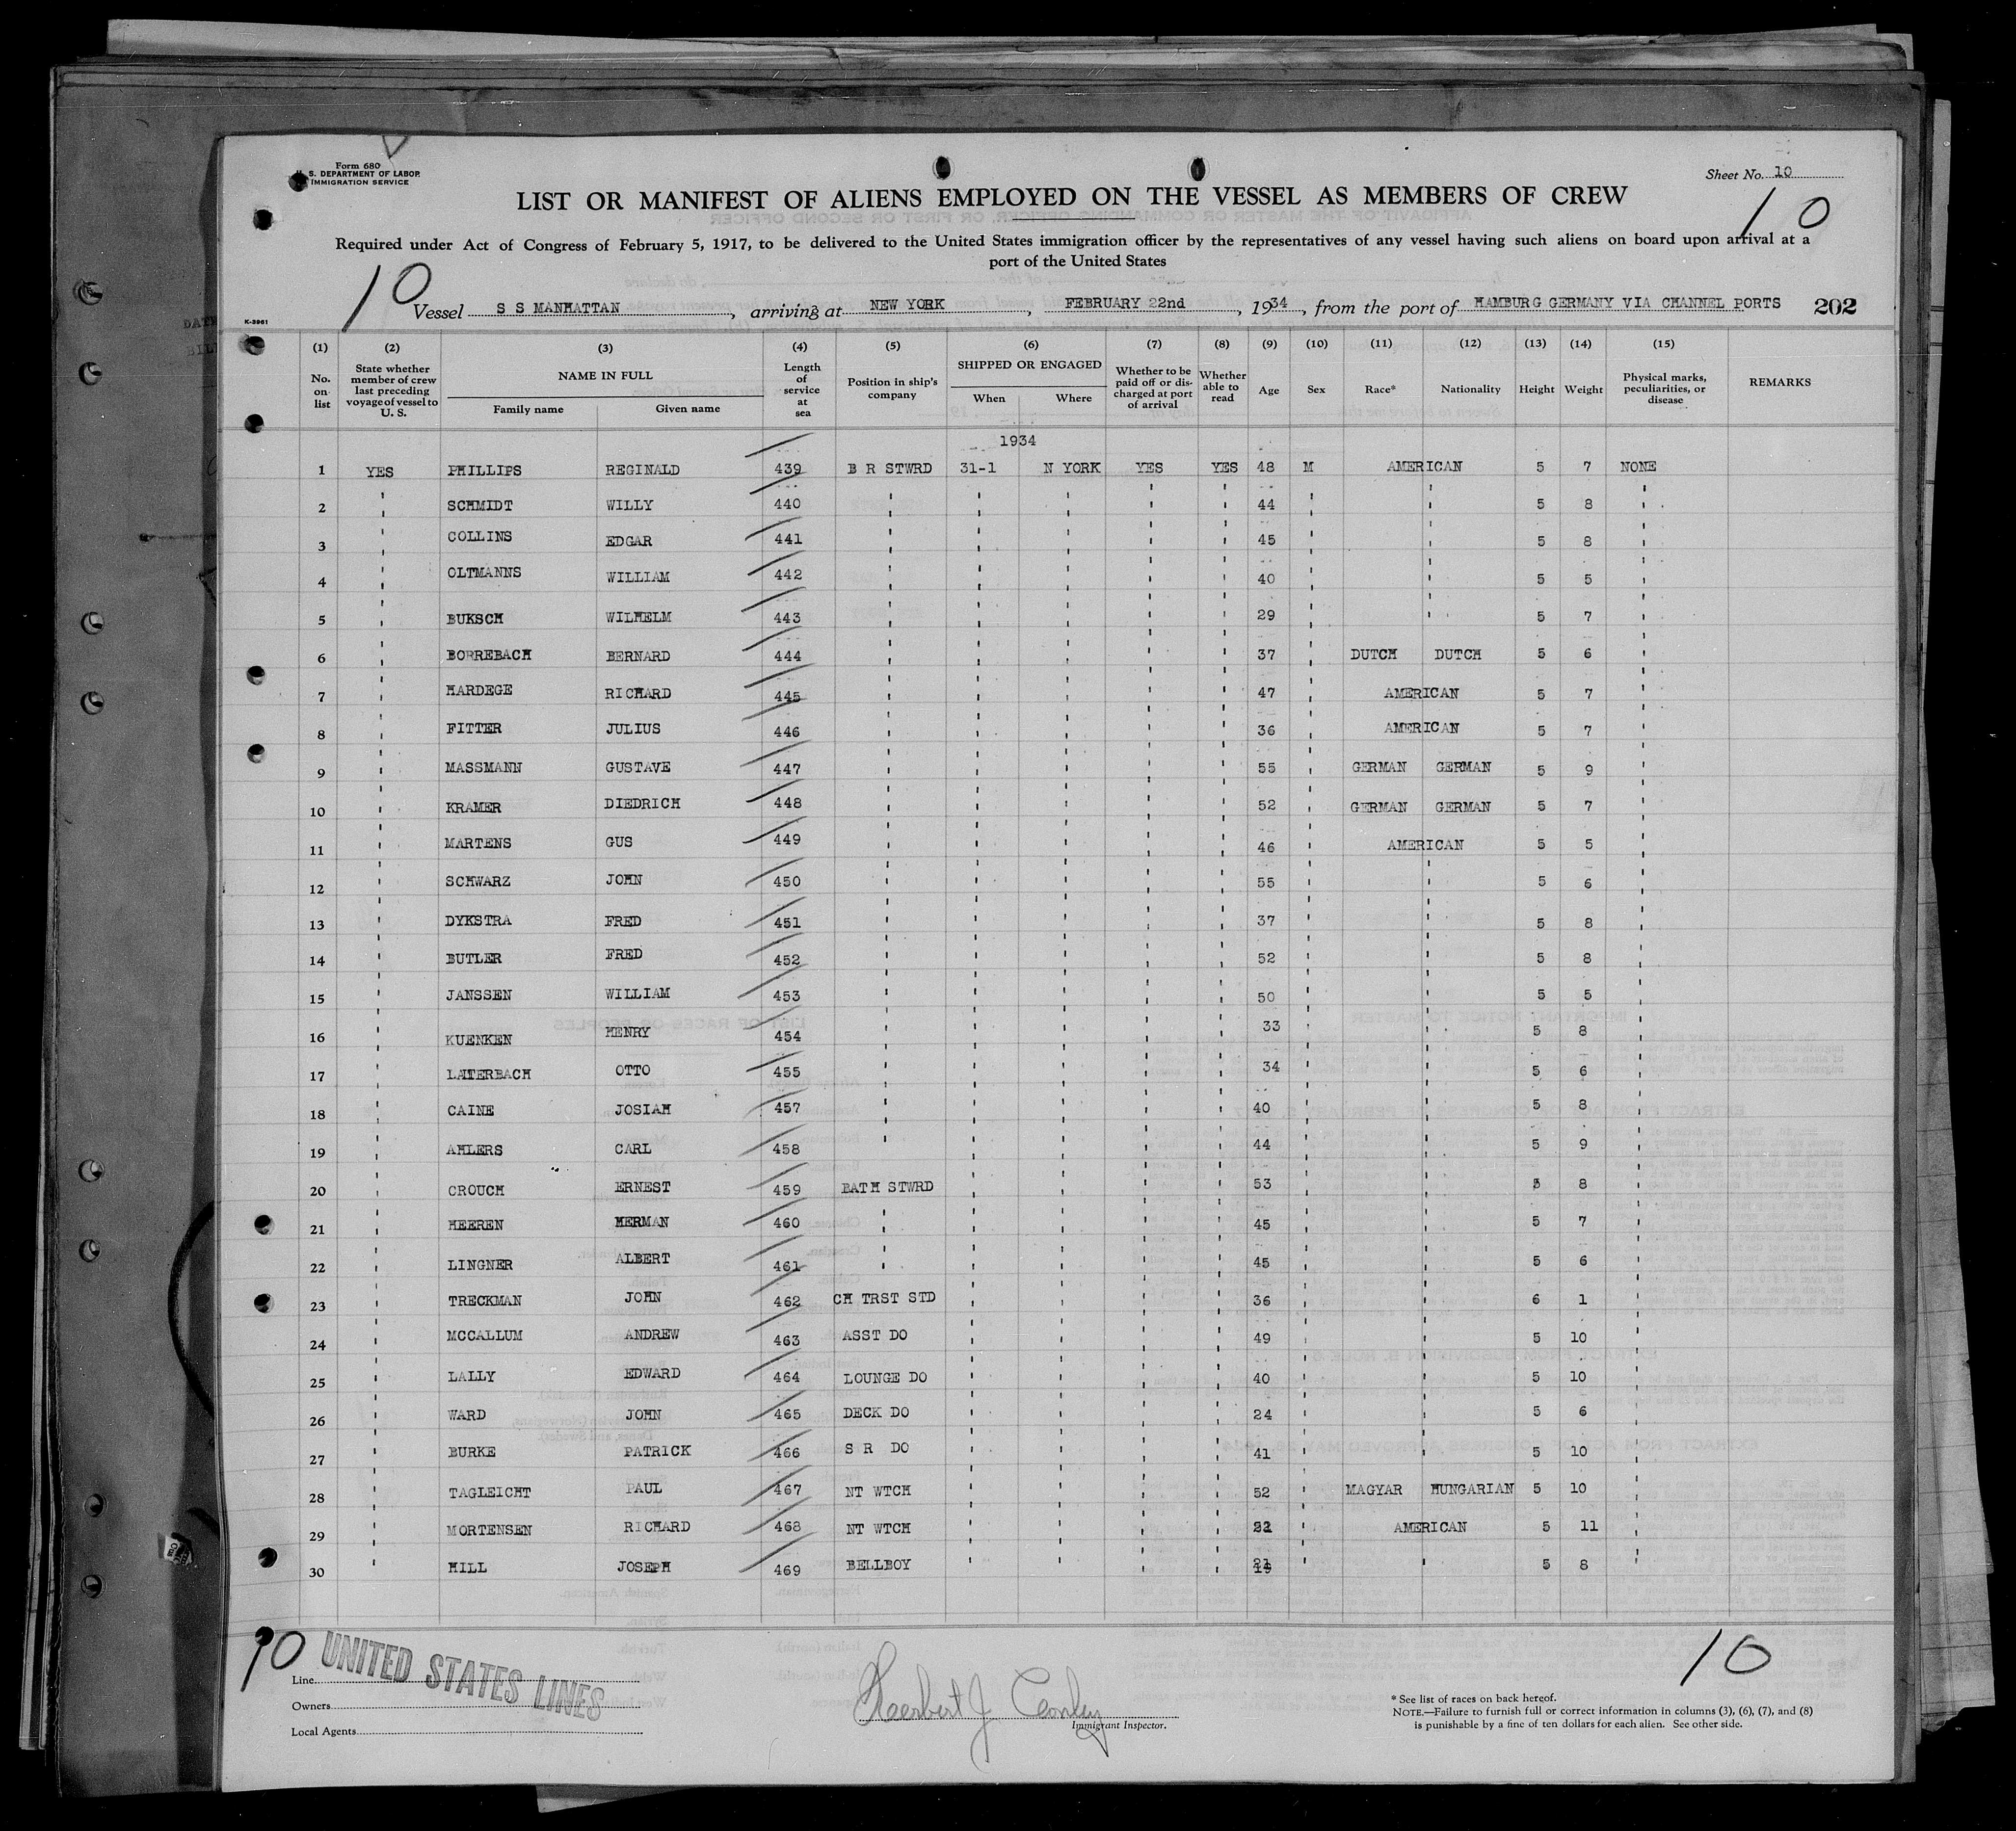 Form 680
U. S. DEPARTMENT OF LABOR
IMMIGRATION SERVICE
Sheet No. 10
LIST OR MANIFEST OF ALIENS EMPLOYED ON THE VESSEL AS MEMBERS OF CREW
10
Required under Act of Congress of February 5, 1917, to be delivered to the United States immigration officer by the representatives of any vessel having such aliens on board upon arrival at a
port of the United States
10
Vessel S S MANHATTAN, arriving at NEW YORK, FEBRUARY 22nd, 1934, from the port of HAMBURG GERMANY VIA CHANNEL PORTS 202
K-3961
(1) (2) (3) (4) (5) (6) (7) (8) (9) (10) (11) (12) (13) (14) (15)
No. on list State whether member of crew last preceding voyage of vessel to U. S. NAME IN FULL Family name Given name Length of service at sea Position in ship's company SHIPPED OR ENGAGED When Where Whether to be paid off or discharged at port of arrival Whether able to read Age Sex Race* Nationality Height Weight Physical marks, peculiarities, or disease REMARKS
1934
1 YES PHILLIPS REGINALD 439 B R STWRD 31-1 N YORK YES YES 48 M AMERICAN 5 7 NONE
2 " SCHMIDT WILLY 440 " " " " " 44 " " 5 8 "
3 " COLLINS EDGAR 441 " " " " " 45 " " 5 8 "
4 " OLTMANNS WILLIAM 442 " " " " " 40 " " 5 5 "
5 " BUKSCH WILHELM 443 " " " " " 29 " " 5 7 "
6 " BORREBACH BERNARD 444 " " " " " 37 " DUTCH DUTCH 5 6 "
7 " HARDEGE RICHARD 445 " " " " " 47 " AMERICAN 5 7 "
8 " FITTER JULIUS 446 " " " " " 36 " AMERICAN 5 7 "
9 " MASSMANN GUSTAVE 447 " " " " " 55 " GERMAN GERMAN 5 9 "
10 " KRAMER DIEDRICH 448 " " " " " 52 " GERMAN GERMAN 5 7 "
11 " MARTENS GUS 449 " " " " " 46 " AMERICAN 5 5 "
12 " SCHWARZ JOHN 450 " " " " " 55 " " 5 6 "
13 " DYKSTRA FRED 451 " " " " " 37 " " 5 8 "
14 " BUTLER FRED 452 " " " " " 52 " " 5 8 "
15 " JANSSEN WILLIAM 453 " " " " " 50 " " 5 5 "
16 " KUENKEN HENRY 454 " " " " " 33 " " 5 8 "
17 " OTTO 455 " " " " " 34 " " 5 6 "
18 " CAINE JOSIAH 457 " " " " " 40 " " 5 8 "
19 " AHLERS CARL 458 " " " " " 44 " " 5 9 "
20 " CROUCH ERNEST 459 BATH STWRD " " " " 53 " " 5 8 "
21 " HEEREN HERMAN 460 " " " " " 45 " " 5 7 "
22 " LINGNER ALBERT 461 " " " " " 45 " " 5 6 "
23 " TRECKMAN JOHN 462 CH TRST STD " " " " 36 " " 6 1 "
24 " MCCALLUM ANDREW 463 ASST DO " " " " 49 " " 5 10 "
25 " LALLY EDWARD 464 LOUNGE DO " " " " 40 " " 5 10 "
26 " WARD JOHN 465 DECK DO " " " " 24 " " 5 6 "
27 " BURKE PATRICK 466 S R DO " " " " 41 " " 5 10 "
28 " TAGLEICHT PAUL 467 NT WTCH " " " " 52 " MAGYAR HUNGARIAN 5 10 "
29 " MORTENSEN RICHARD 468 NT WTCH " " " " " AMERICAN 5 11 "
30 " HILL JOSEPH 469 BELLBOY " " " " 21 " " 5 8 "
10 10
Line UNITED STATES LINES
Owners
Local Agents
Herbert J Conley
Immigrant Inspector.
* See list of races on back hereof.
NOTE.—Failure to furnish full or correct information in columns (3), (6), (7), and (8)
is punishable by a fine of ten dollars for each alien. See other side.